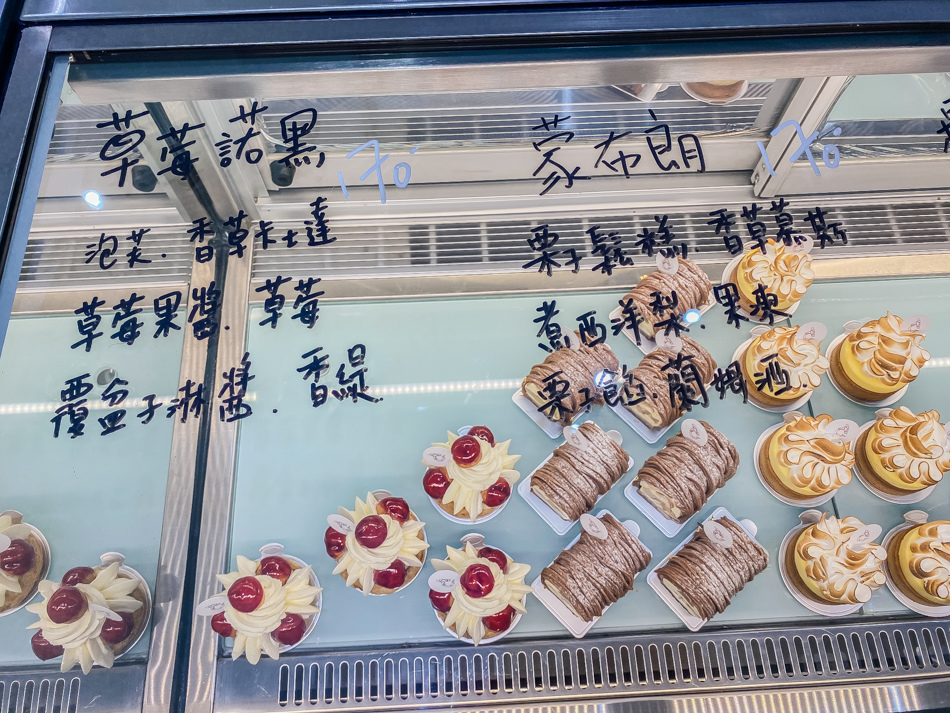 草莓諾黑 170
泡芙.香草卡士達
草莓果醬.草莓
覆盆子淋醬.香緹.
蒙布朗 170
栗子鬆糕.香草慕斯
煮西洋梨.果凍
栗子餡.蘭姆酒.